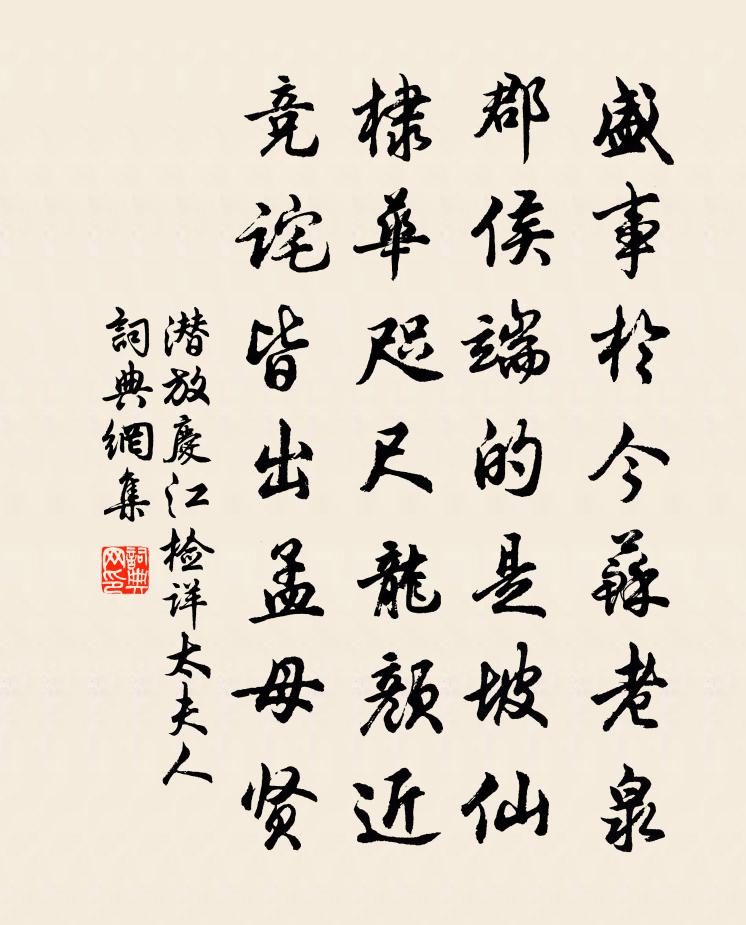 盛事於今蘇老泉
郡侯端的是坡仙
棣華咫尺龍顔近
竞诧皆出孟母贤
潜放慶江检详太夫人
詞典網集
詞典网印